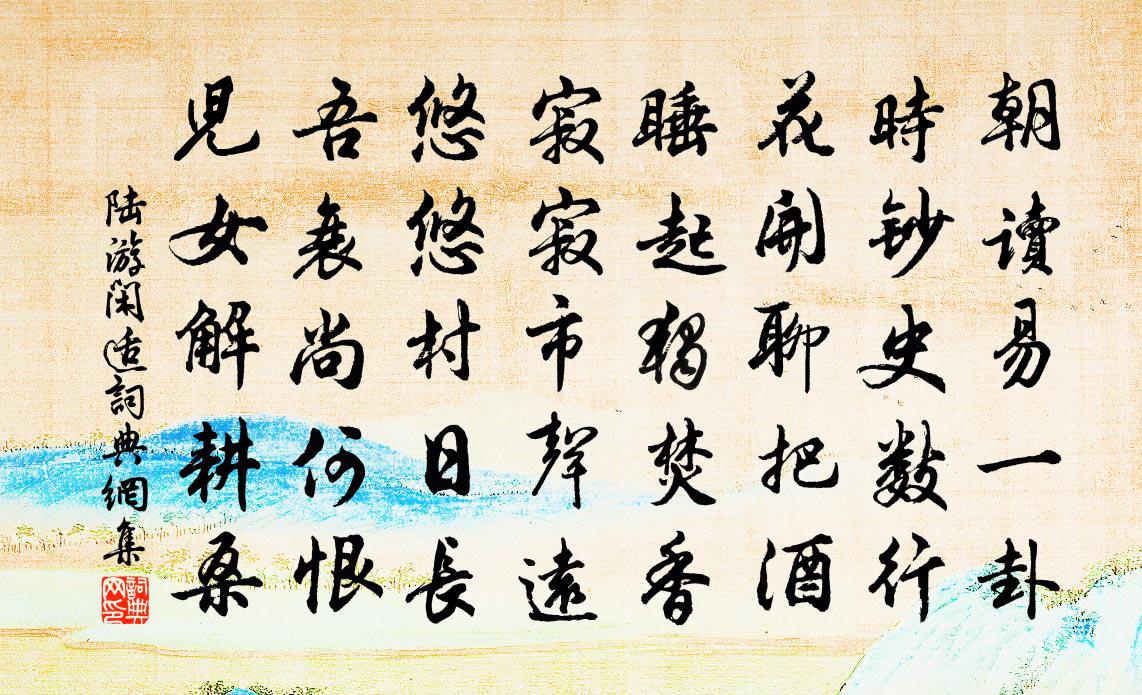 朝讀易一卦
時鈔史數行
花開聊把酒
睡起獨焚香
寂寂市聲遠
悠悠村日長
吾衰尚何恨
兒女解耕桑
陆游闲适詞典網集
詞典网印